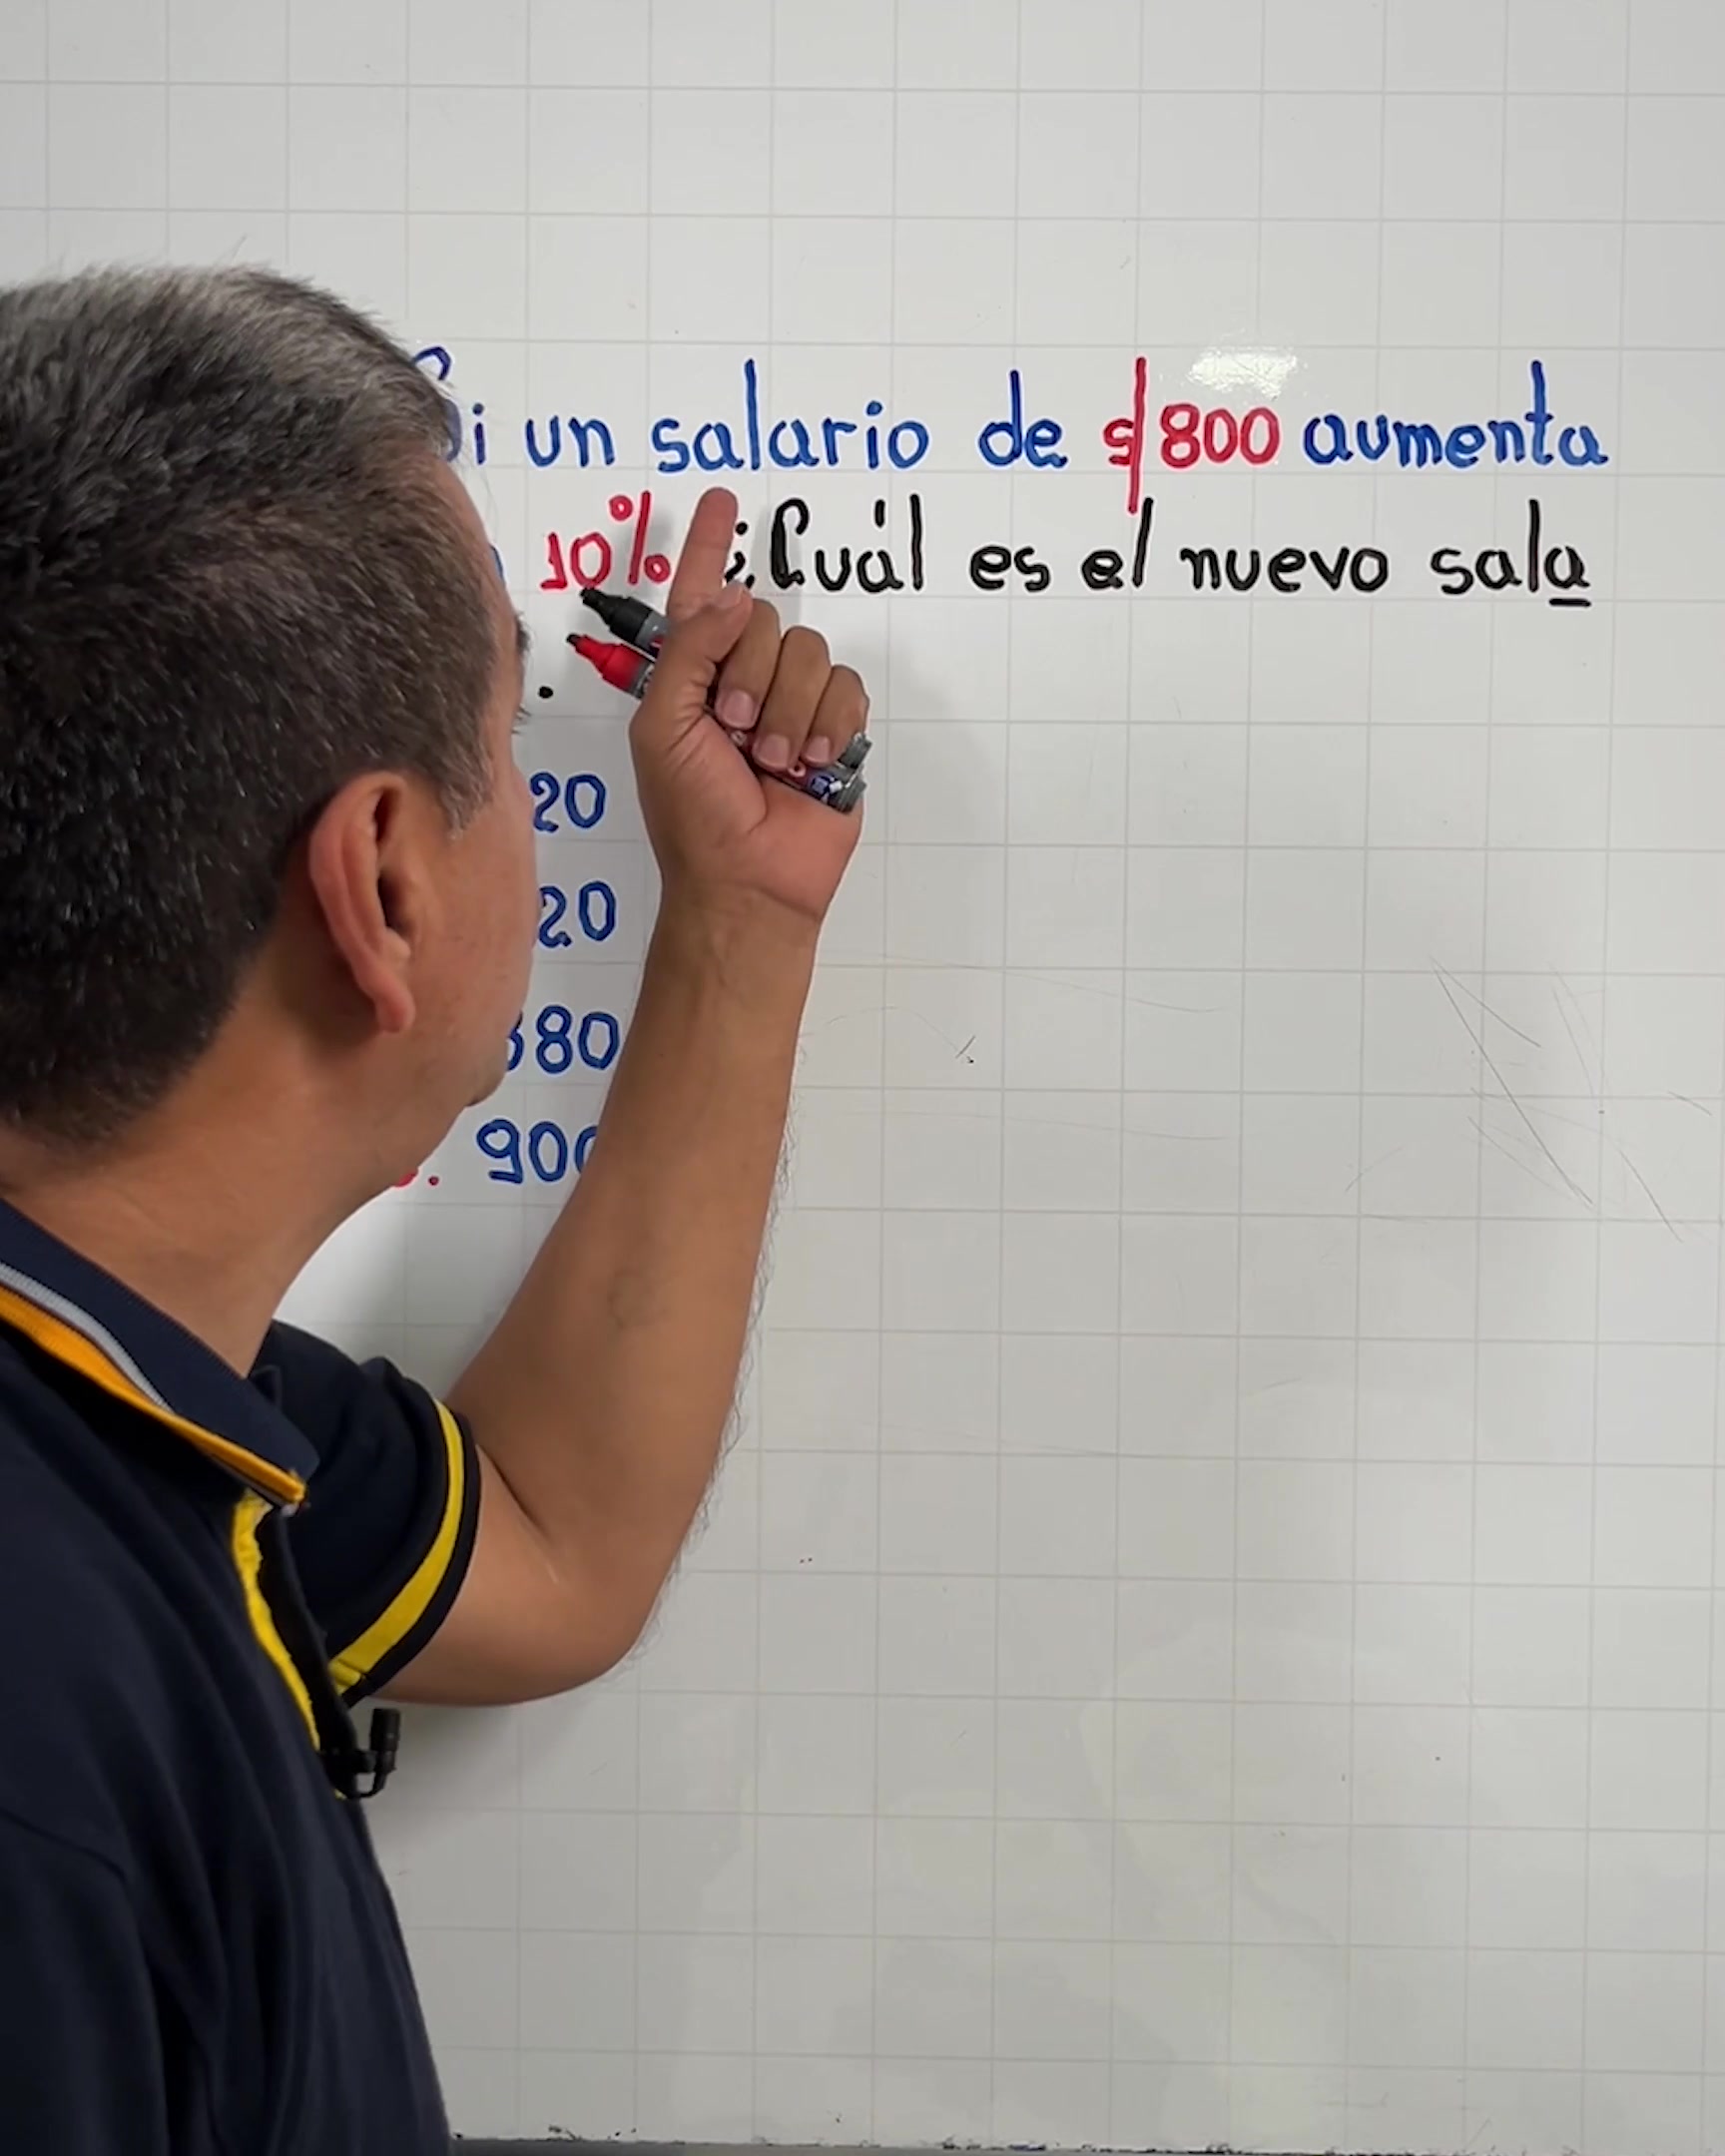 un salario de $800 aumenta
10% ¿Cuál es el nuevo sala
.
20
20
80
900